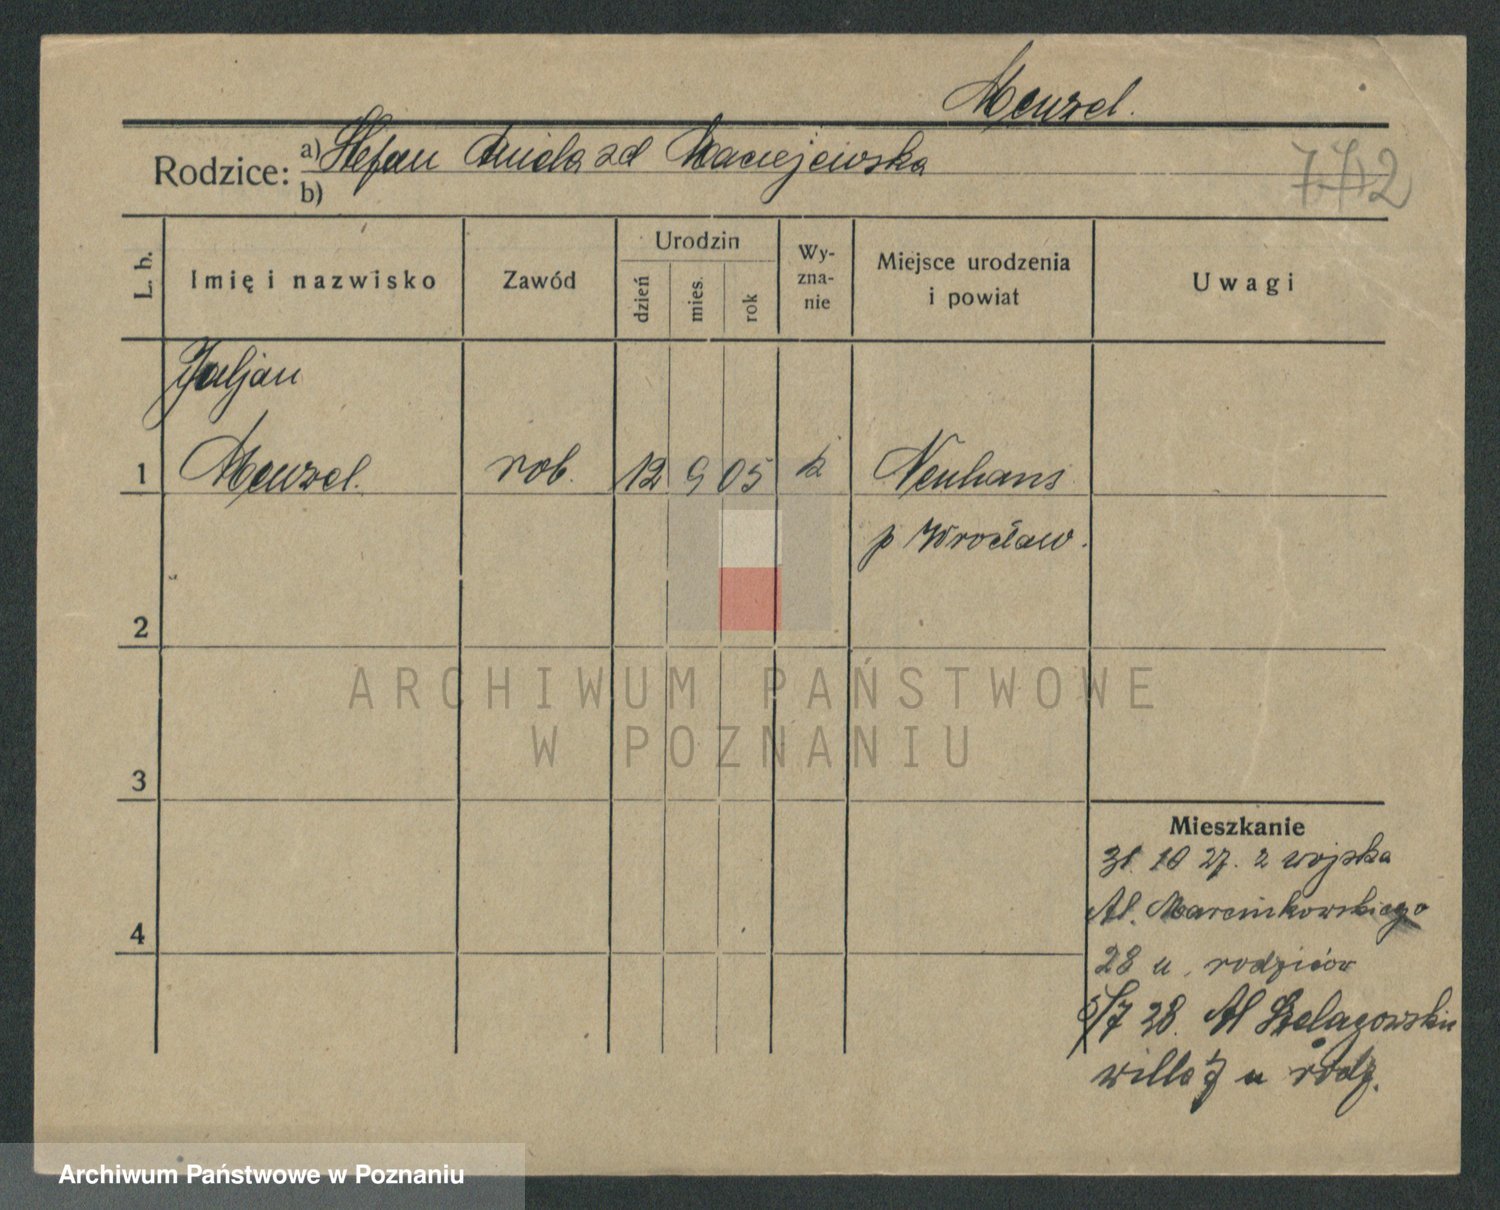 Menzel.
Rodzice: a) Stefan Anida zd Maciejewska
b)
7.7.2
L. b.
Imię i nazwisko
Zawód
Urodzin
dzień
mies.
rok
Wy-
zna-
nie
Miejsce urodzenia
i powiat
Uwagi
Juljan
1 Menzel. rob. 12 9 05 k Neuhans
p Wrocław.
2
3
4
ARCHIWUM PAŃSTWOWE
W POZNANIU
Mieszkanie
31. 10 27. z wojska
Al. Marcinkowskiego
28 u. rodziców
5/7 28. Al Szelągowskie
willa u rodz.
Archiwum Państwowe w Poznaniu